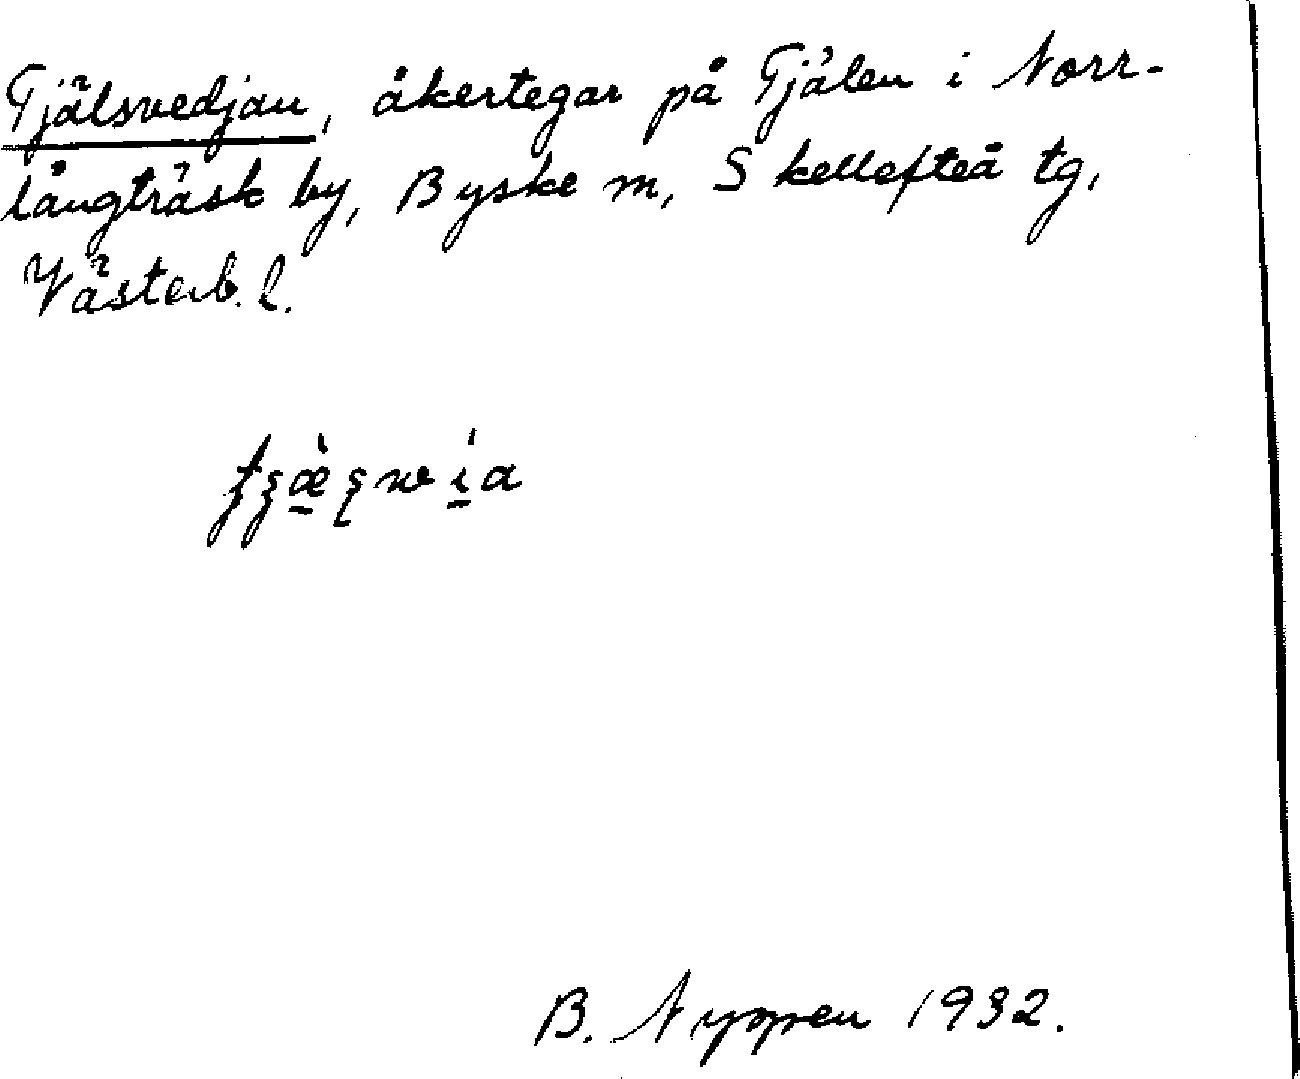 Tjälsvedjan, åkertegar på Tjälen i Norr-
långträsk by, Byske m, Skellefteå tg,
Västerb. l.
B. Nyppen 1932.